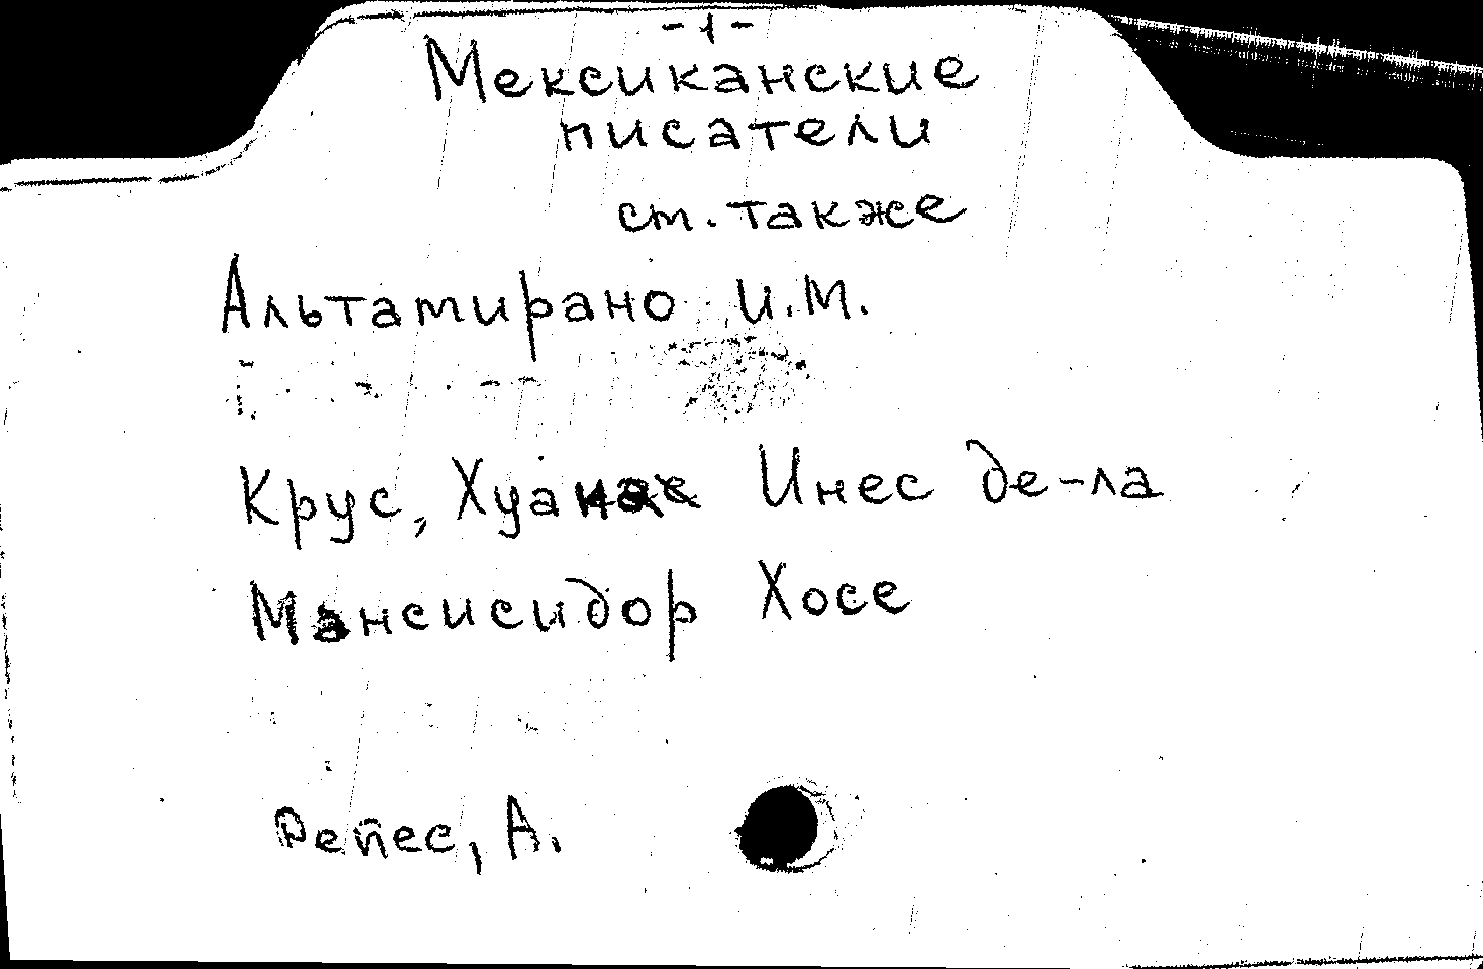 -1-
Мексиканские
писатели
см. также
Альтамирано И.М.
Крус, Хуана Инес де-ла
Мансисидор Хосе
Рейес, А.